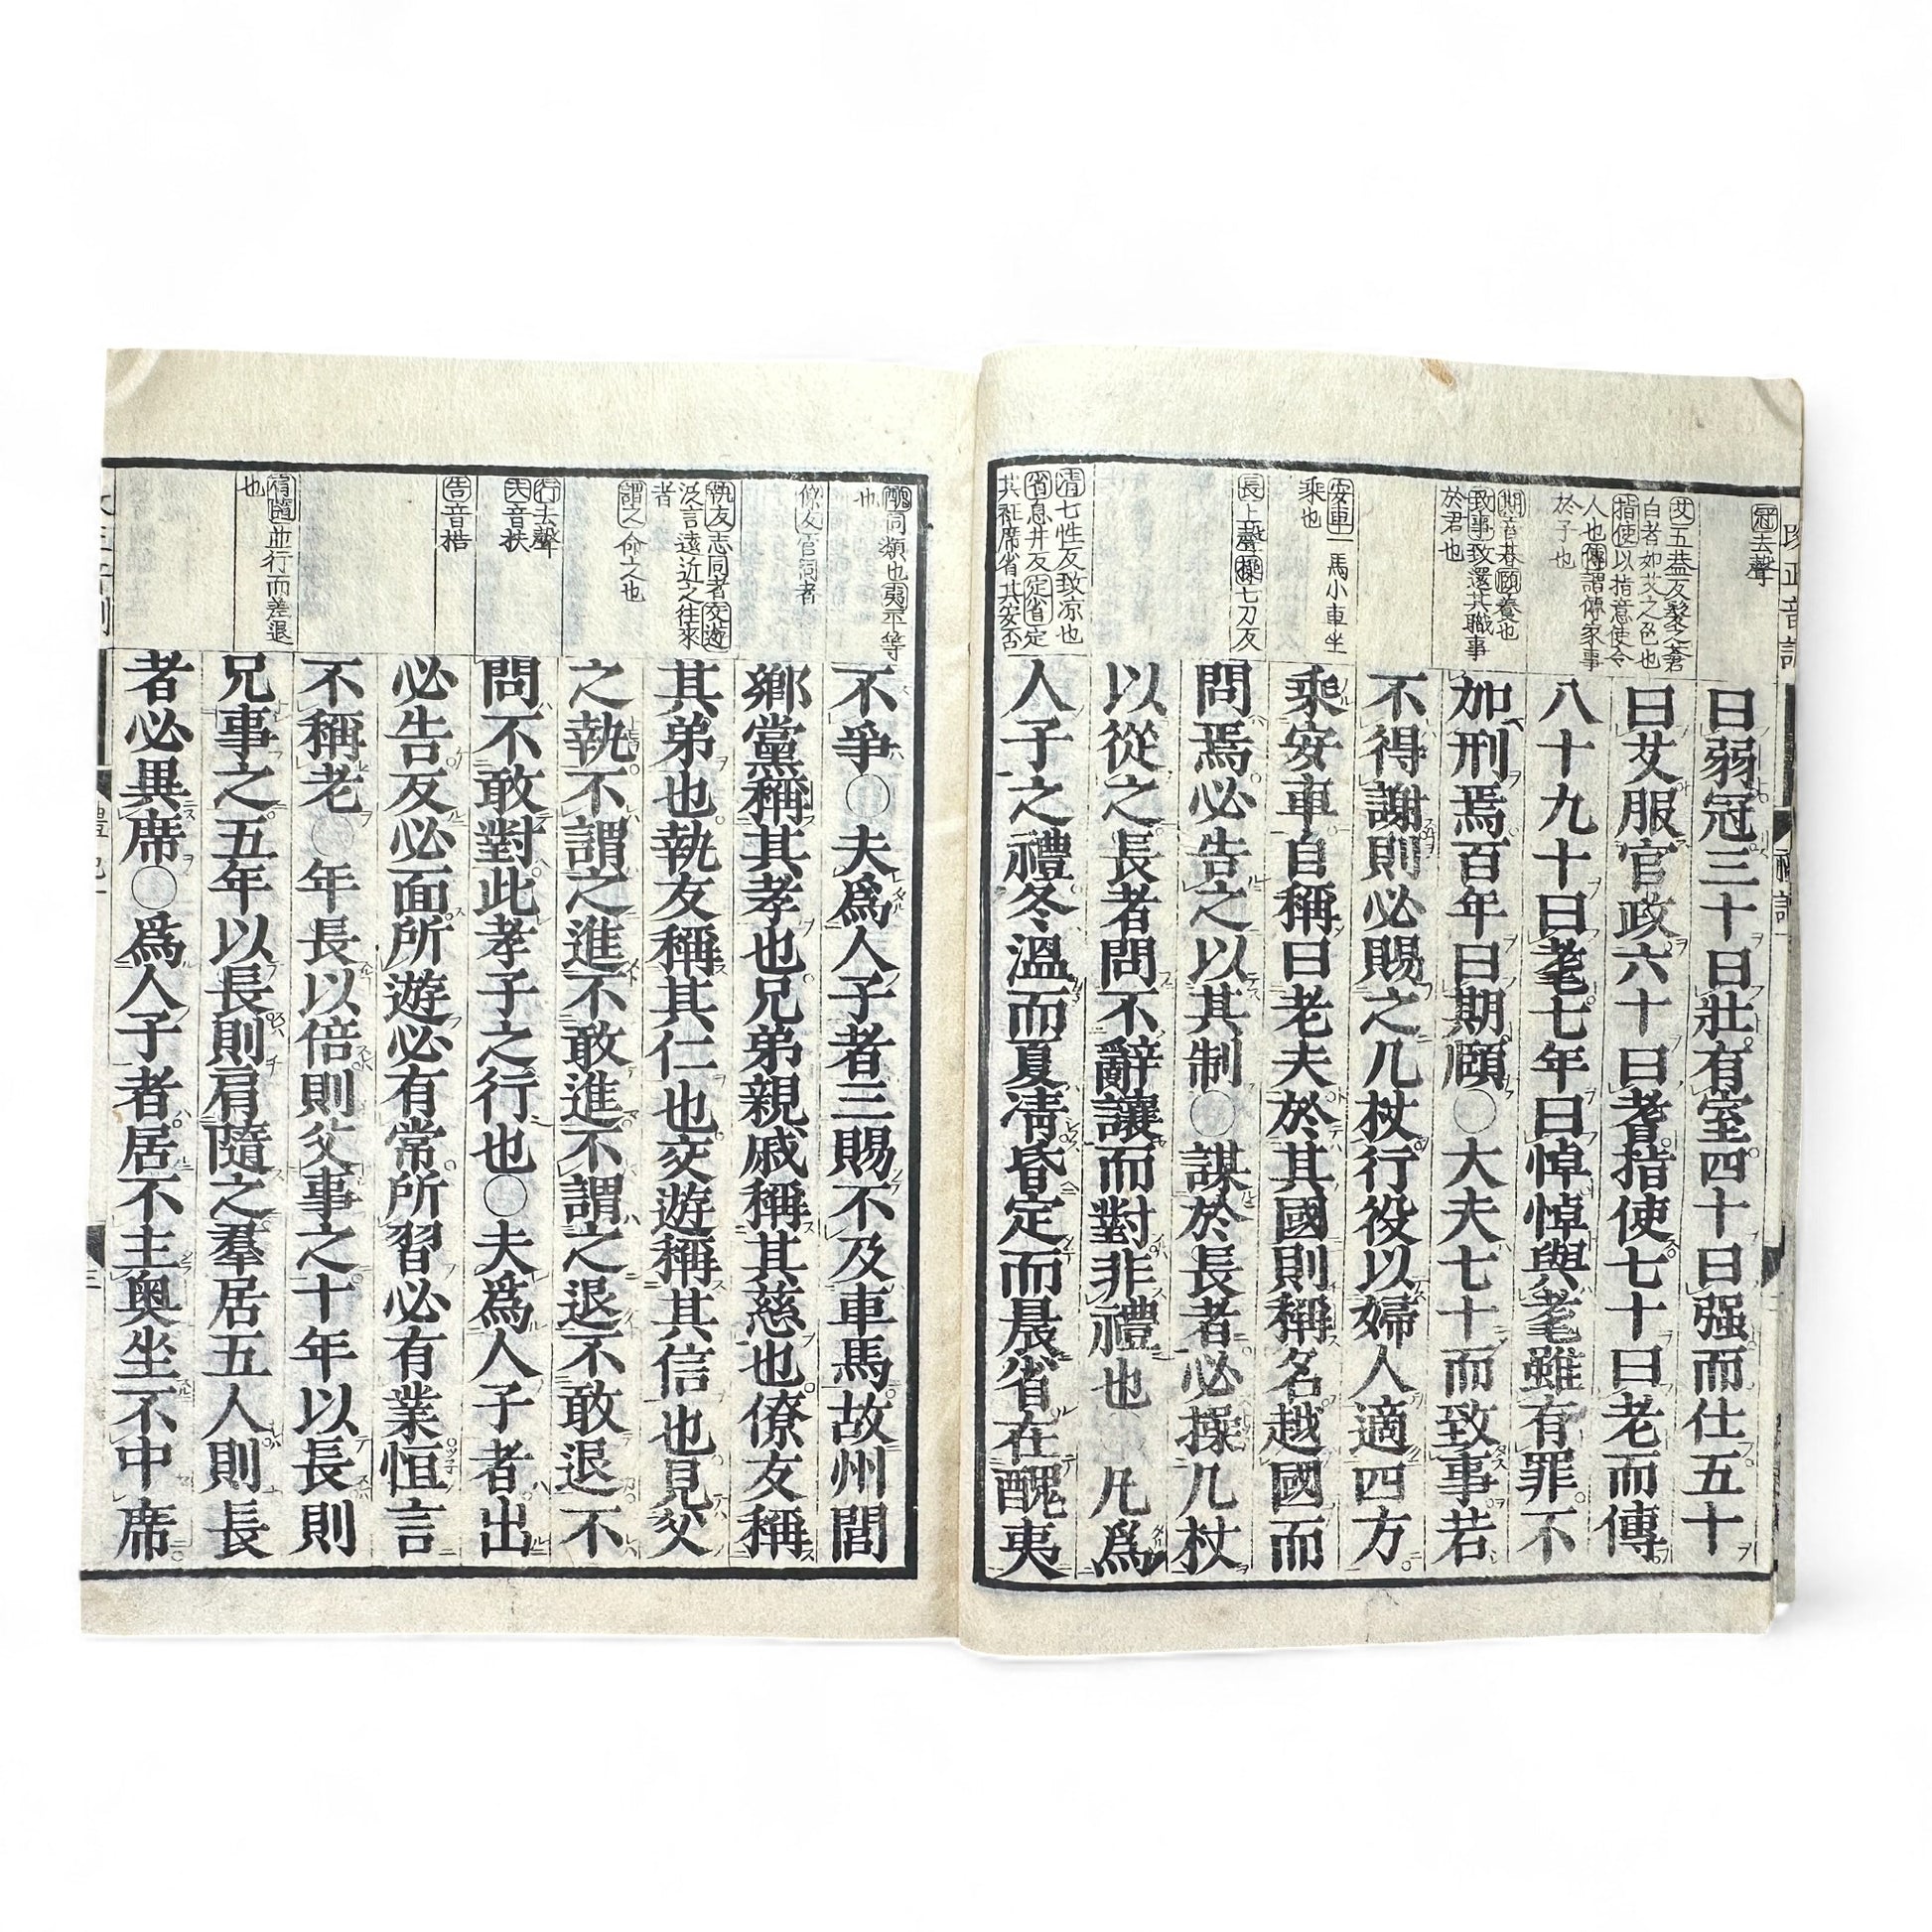 冠去聲
艾五盖反髮之蒼
白者如艾之色也
指使以指意使令
人也傳謂傳家事
於子也
期音朞頤養也
致事致還其職事
於君也
安車一馬小車坐
乘也
長上聲操七刀反
凊七性反致凉也
省息井反定省定
其袵席省其安否
曰弱冠三十曰壯有室四十曰强而仕五十
曰艾服官政六十曰耆指使七十曰老而傳
八十九十曰耄七年曰悼悼與耄雖有罪不
加刑焉百年曰期頤○大夫七十而致事若
不得謝則必賜之几杖行役以婦人適四方
乘安車自稱曰老夫於其國則稱名越國而
問焉必告之以其制○謀於長者必操几杖
以從之長者問不辭讓而對非禮也 凡爲
人子之禮冬溫而夏凊昏定而晨省在醜夷
醜同類也夷平等
也
僚友官同者
執友志同者交遊
泛言遠近之往來
者
謂之命之也
行去聲
夫音扶
告音梏
肩隨並行而差退
也
不爭○夫爲人子者三賜不及車馬故州閭
鄉黨稱其孝也兄弟親戚稱其慈也僚友稱
其弟也執友稱其仁也交遊稱其信也見父
之執不謂之進不敢進不謂之退不敢退不
問不敢對此孝子之行也○夫爲人子者出
必告反必面所遊必有常所習必有業恒言
不稱老○年長以倍則父事之十年以長則
兄事之五年以長則肩隨之羣居五人則長
者必異席○爲人子者居不主奥坐不中席